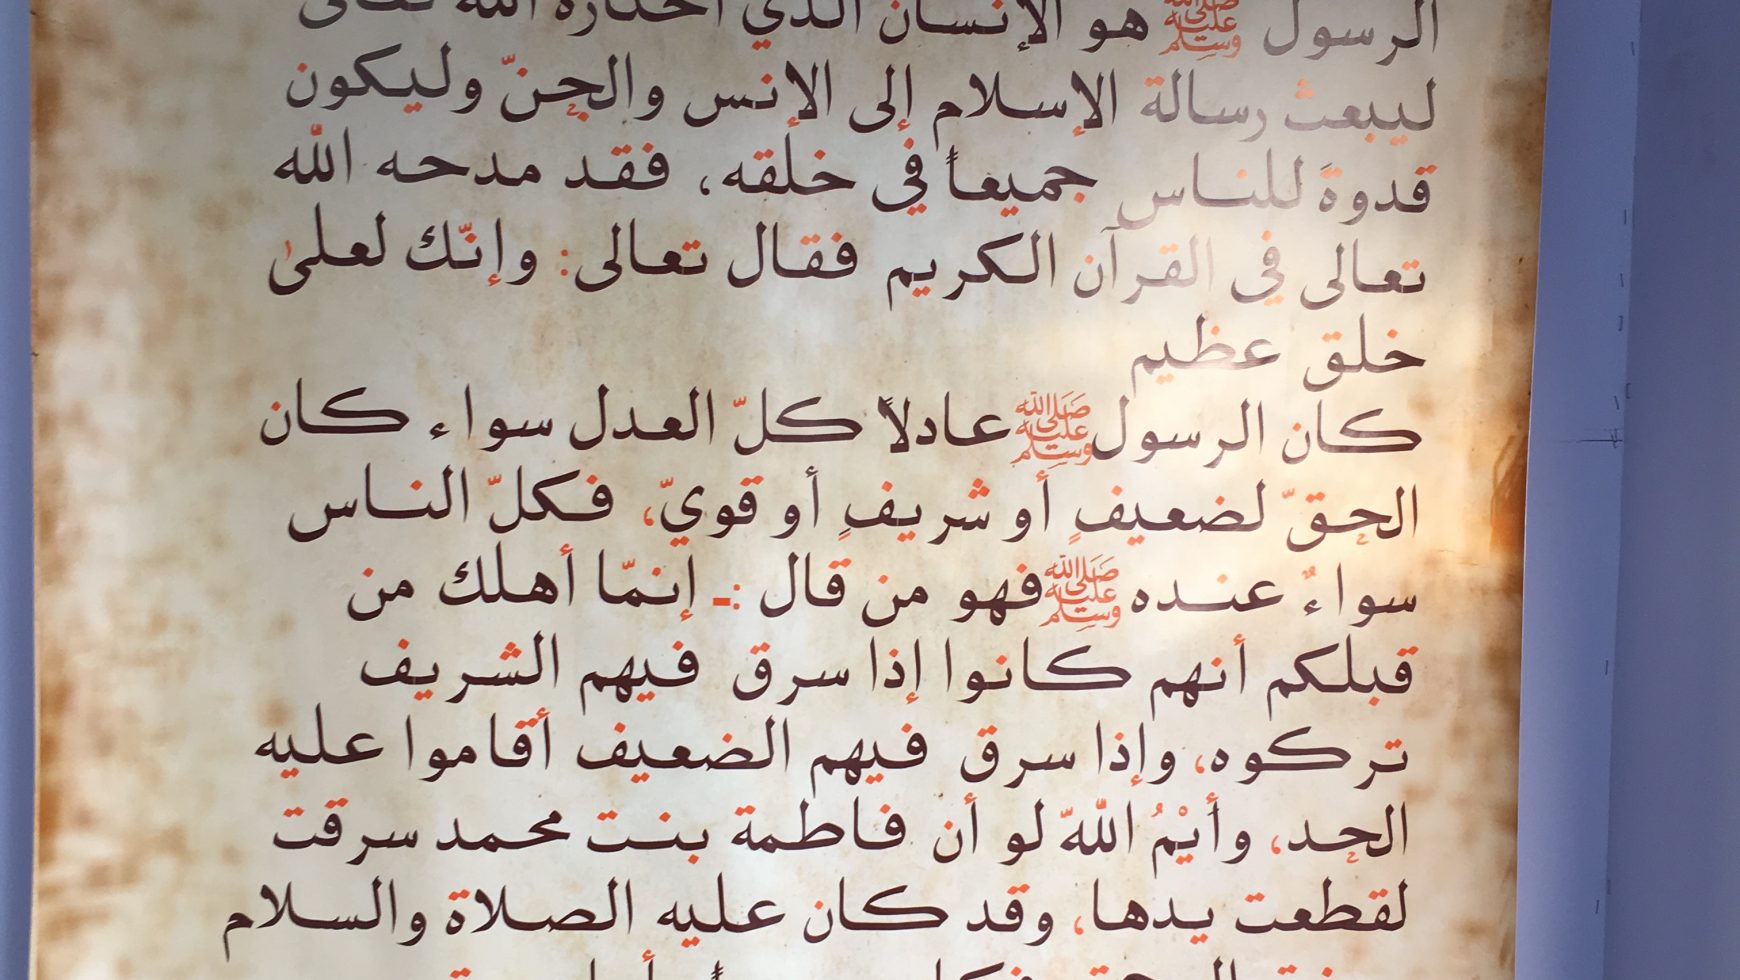 الرسول ﷺ هو الإنسان الذي اختاره الله تعالى
ليبعث رسالة الإسلام إلى الإنس والجنّ وليكون
قدوةً للناس جميعاً في خلقه، فقد مدحه الله
تعالى في القرآن الكريم فقال تعالى: وإنّك لعلىٰ
خلق عظيم
كان الرسول ﷺ عادلاً كلّ العدل سواء كان
الحقّ لضعيفٍ أو شريفٍ أو قويّ، فكلّ الناس
سواءٌ عنده ﷺ فهو من قال :- إنمّا أهلك من
قبلكم أنهم كانوا إذا سرق فيهم الشريف
تركوه، وإذا سرق فيهم الضعيف أقاموا عليه
الحد، وأيْمُ اللّه لو أن فاطمة بنت محمد سرقت
لقطعت يدها، وقد كان عليه الصلاة والسلام